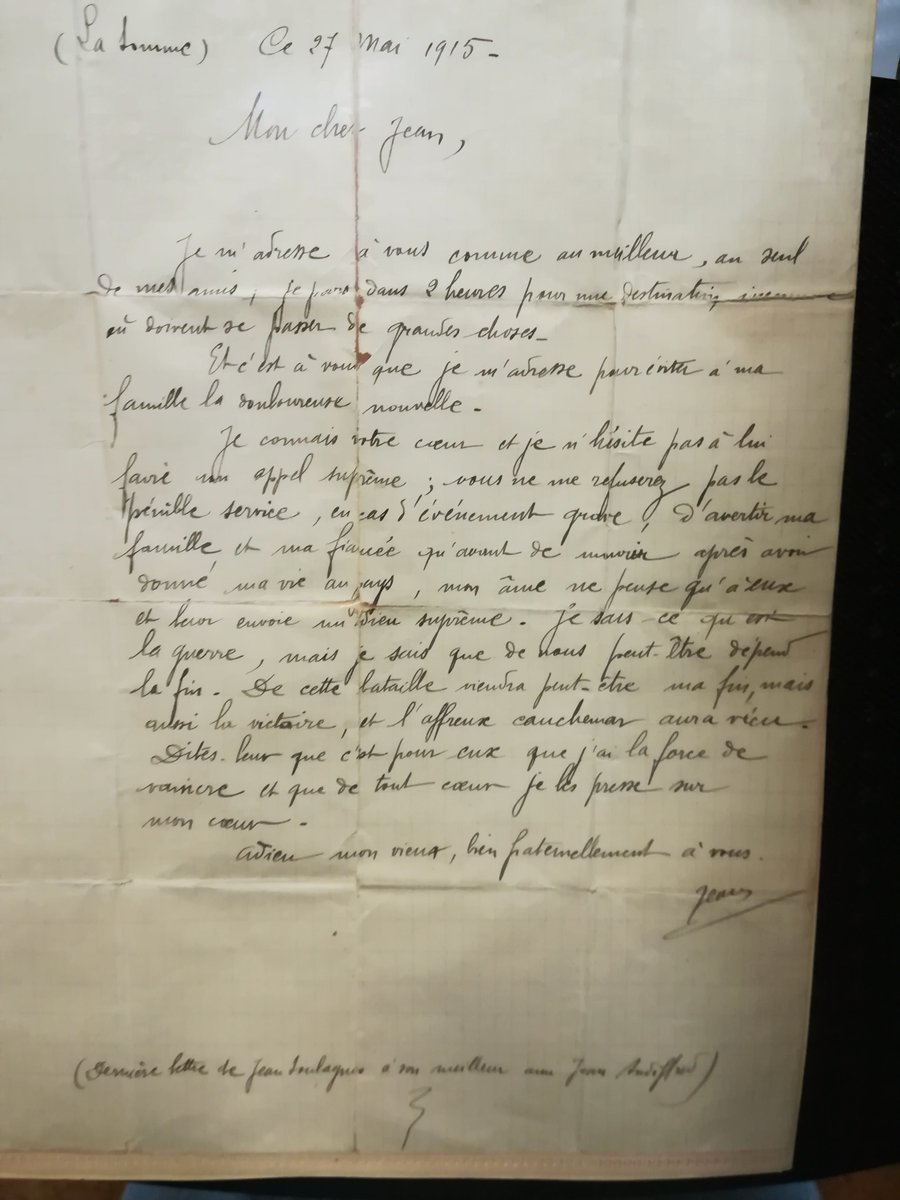 (La Somme) Ce 27 Mai 1915 -
Mon cher Jean,
Je m'adresse à vous comme au meilleur, au seul
de mes amis, je pars dans 2 heures pour une destination inconnue
où doivent se passer de grandes choses -
Et c'est à vous que je m'adresse pour éviter à ma
famille la douloureuse nouvelle -
Je connais votre cœur et je n'hésite pas à lui
faire un appel suprême ; vous ne me refuserez pas le
pénible service, en cas d'événement grave, d'avertir ma
famille et ma fiancée qu'avant de mourir après avoir
donné ma vie au pays, mon âme ne pense qu'à eux
et leur envoie un adieu suprême. Je sais ce qu'est
la guerre, mais je sais que de nous peut-être dépend
la fin. De cette bataille viendra peut-être ma fin, mais
aussi la victoire, et l'affreux cauchemar aura vécu.
Dites-leur que c'est pour eux que j'ai la force de
vaincre et que de tout cœur je les presse sur
mon cœur -
Adieu mon vieux, bien fraternellement à vous.
Jean
(Dernière lettre de Jean à son meilleur ami Jean)